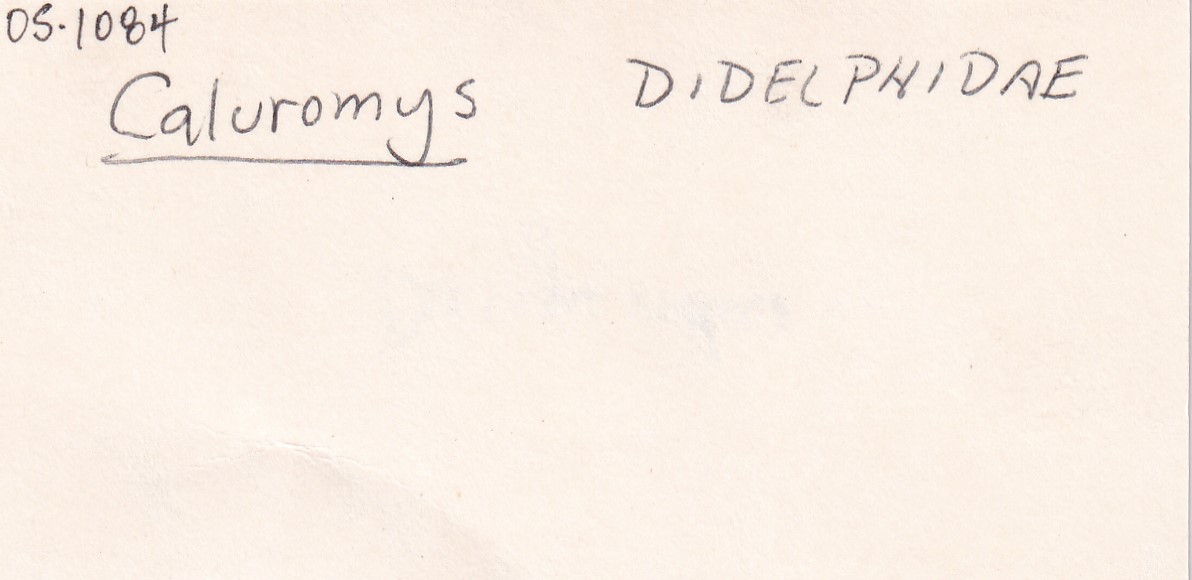 OS·1084
Caluromys DIDELPHIDAE